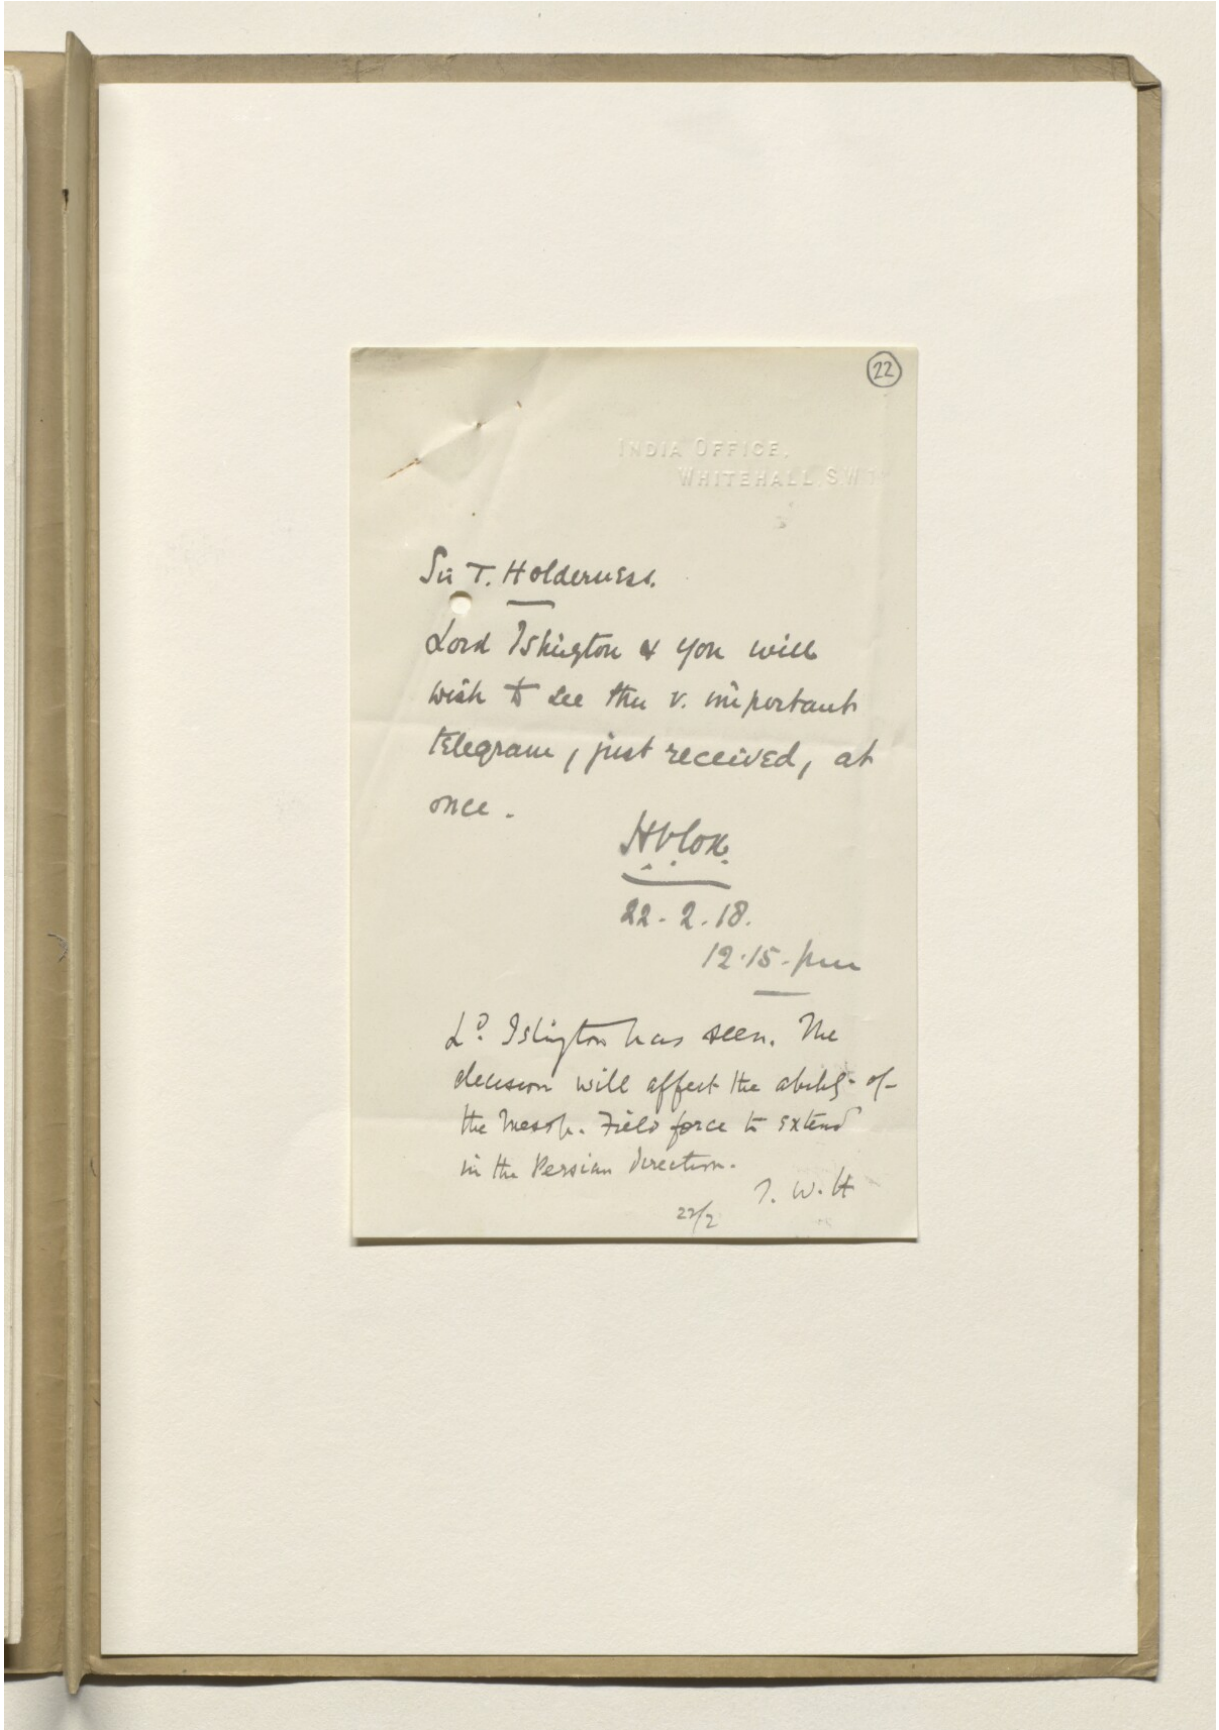 22
INDIA OFFICE,
WHITEHALL, S.W.1
Sir T. Holderness.
Lord Islington & you will
wish to see this v. important
telegram, just received, at
once.
HVCox
22-2.18.
12.15-pm
Ld. Islington has seen. The
decision will affect the ability of
the Mesop. Field force to extend
in the Persian direction.
T. W. H
22/2